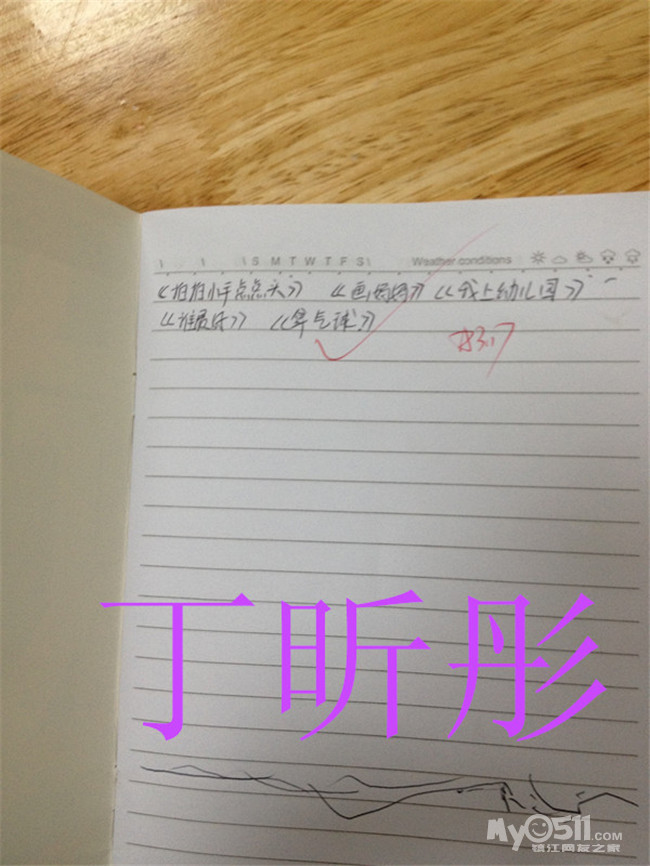 S M T W T F S Weather conditions
《拍拍小手点点头》 《画妈妈》 《我上幼儿园》
《谁最好》 《气球》
丁昕彤
My0511.COM
镇江网友之家